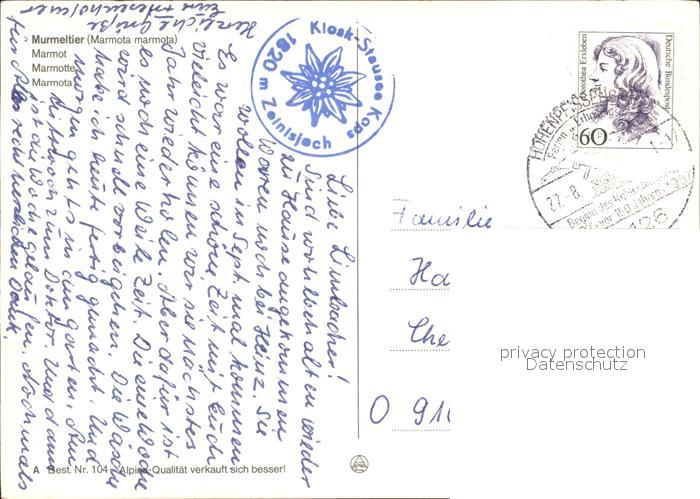 Murmeltier (Marmota marmota)
Marmot
Marmotte
Marmota
Kiosk-Stausee Kops
1820 m Zeinisjoch
Deutsche Bundespost
Dorothea Erxleben
60
HOHENPEISSENBERG
27.-8.
126
Liebe Limbacher!
Sind wohlbehalten wieder
zu Hause angekommen,
Waren noch bei Heinz. Sie
wollen im Sept. mal kommen
Es war eine schöne Zeit mit Euch
vieleicht können wir sie nächstes
Jahr wiederholen. Aber dafür ist
es noch eine Weile Zeit. Die eine Woche
wird schnell vorbeigehen. Die Wäsche
habe ich heute fertig gemacht. Und
morgen gehts in den Garten. Am
Mittwoch zum Doktor. Und dann
ist die Woche gelaufen. Nochmals
für Alles recht herzlichen Dank.
Herzliche Grüße
Familie
Ha
Che
O 910
privacy protection
Datenschutz
A Best. Nr. 104 Alpina-Qualität verkauft sich besser!